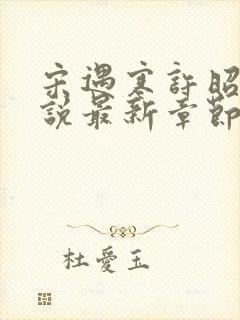 宋遇寒許昭
說最新章節
杜愛玉